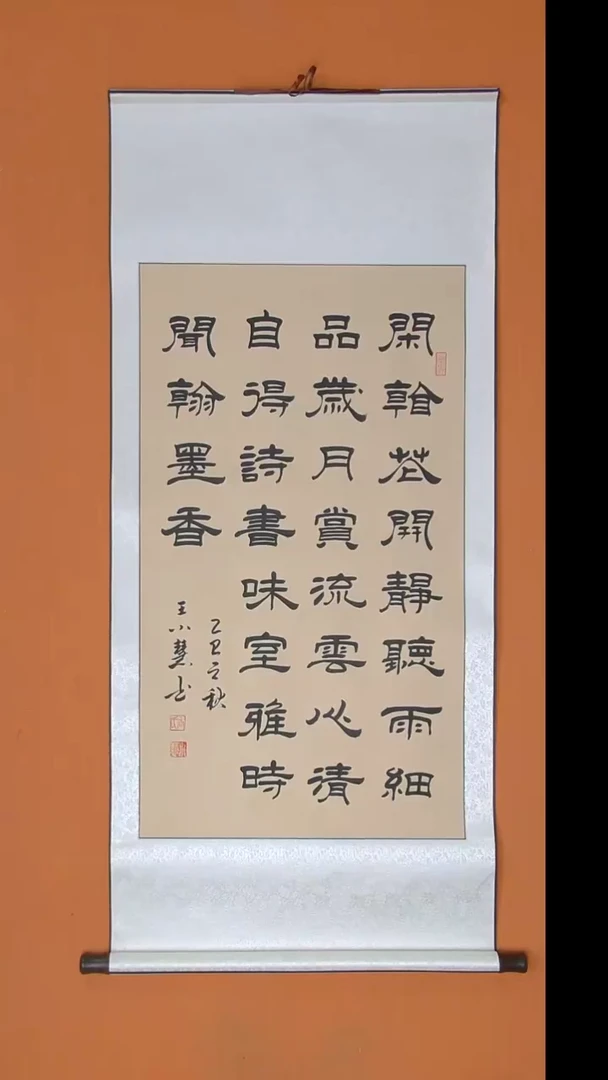 閑看花開靜聽雨細
品歲月賞流雲心清
自得詩書味室雅時
聞翰墨香
乙巳之秋
王小慧书